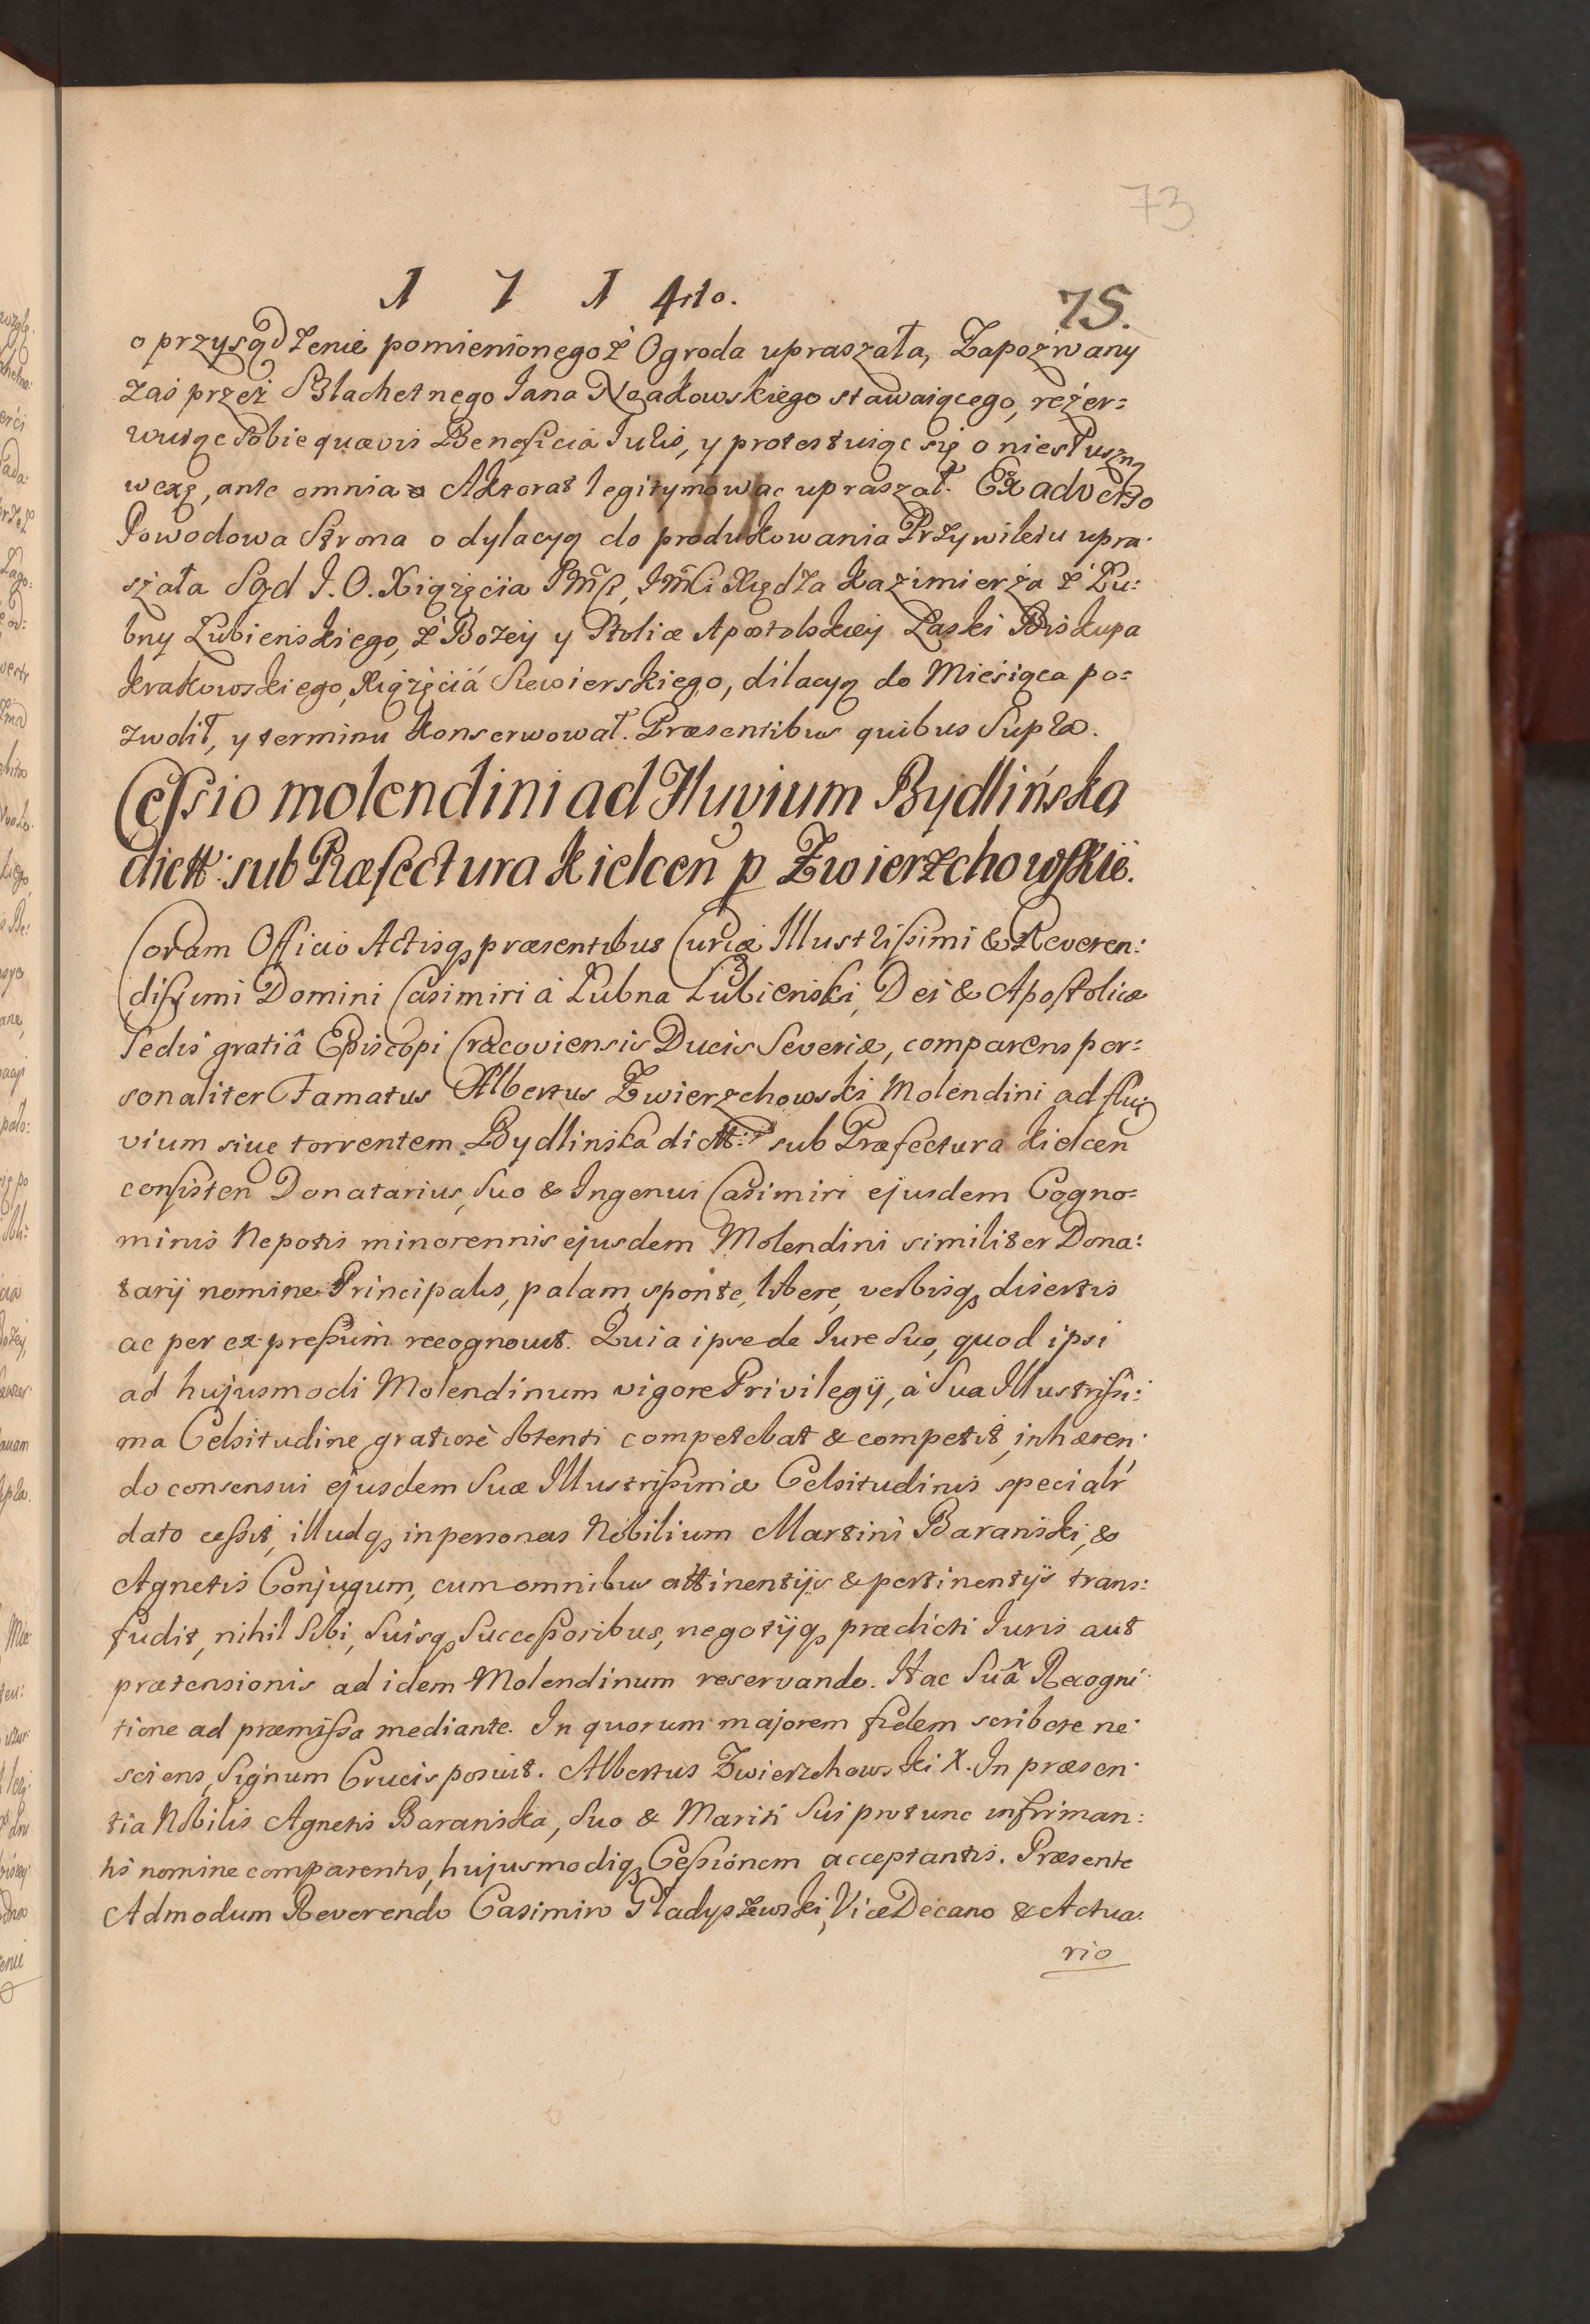 73
1 7 1 4to. 75.
o przysądzenie pomienionegoż Ogroda upraszała, Zapozwany
zaś przez Szlachetnego Jana Ksakowskiego stawaiącego, rezer=
wuiąc sobie quævis Beneficia Juris, y protestuiąc się o niesłuszną
wexę, ante omnia Aktorat legitymować upraszał. Ex adverso
Powodowa Strona o dylacyą do produkowania Przywileiu upra-
szała Sąd J. O. Xiążęcia JMści Xiędza Kazimierza z Łu:
bny Łubieńskiego, z Bożey y Stolice Apostolskiey Łaski Biskupa
Krakowskiego, Xiążęciá Siewierskiego, dilacyą do Miesiąca po=
zwolił, y terminu konserwował. Præsentibus quibus Supra.
Cessio molendini ad Fluvium Bydlińska
dictt: sub Præfectura Kielcen̄ p Zwierzchowskie.
Coram Officio Actisq3 præsentibus Curiæ Illustrissimi & Reveren:
dissimi Domini Casimiri à Łubna Łubieński, Dei & Apostolicæ
Sedis gratiâ Episcopi Cracoviensis Ducis Severiæ, comparens per=
sonaliter Famatus Albertus Zwierzchowski Molendini ad flu=
vium siue torrentem Bydlinska dictt: sub Præfectura Kielcen̄
consisten̄ Donatarius, Suo & Ingenui Casimiri ejusdem Cogno=
minis Nepotis minorennis ejusdem Molendini similiter Dona:
tarij nomine Principalis, palam, sponte, libere, verbisq3 disertis
ac per expressum recognovit. Quia ipse de Iure Suo, quod ipsi
ad hujusmodi Molendinum vigore Privilegÿ, à Sua Illustrissi:
ma Celsitudine gratiosè obtenti competebat & competit, inhæren-
do consensui ejusdem Suæ Illustrissimæ Celsitudinis specialr
dato cessit, illudq3 in personas Nobilium Martini Barański, &
Agnetis Conjugum, cum omnibus attinentijs & pertinentÿs trans:
fudit, nihil Sibi, Suisq3 Successoribus, negotijq3 prædicti Iuris aut
prætensionis ad idem Molendinum reservando. Hac Suâ Recogni-
tione ad præmissa mediante. In quorum majorem fidem scribere ne-
sciens, Signum Crucis posuit. Albertus Zwierzchowski X. In præsen-
tia Nobilis Agnetis Barańska, Suo & Mariti Sui protunc infirman:
tis nomine comparentis, hujusmodiq3 Cessionem acceptantis. Præsente
Admodum Reverendo Casimiro Gładyszewski, ViceDecano & Actua:
rio